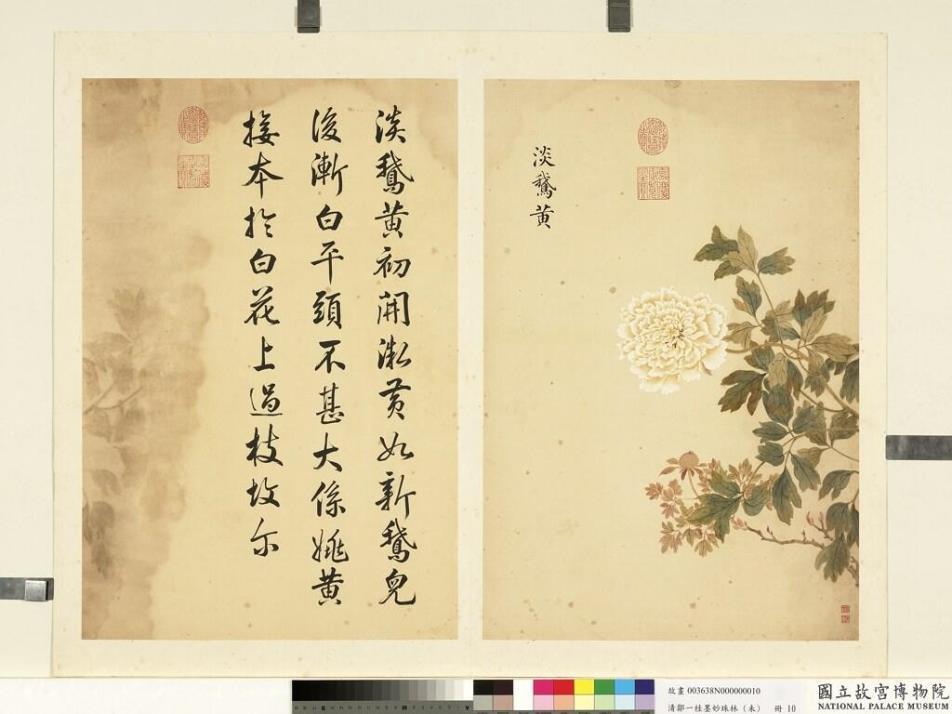 淡鵞黄
淡鵞黄初開微黄如新鵞兒
後漸白平頭不甚大係姚黄
接本於白花上過枝故尔
故畫 003638N000000010
清鄒一桂墨妙珠林(未) 冊 10
國立故宮博物院
NATIONAL PALACE MUSEUM